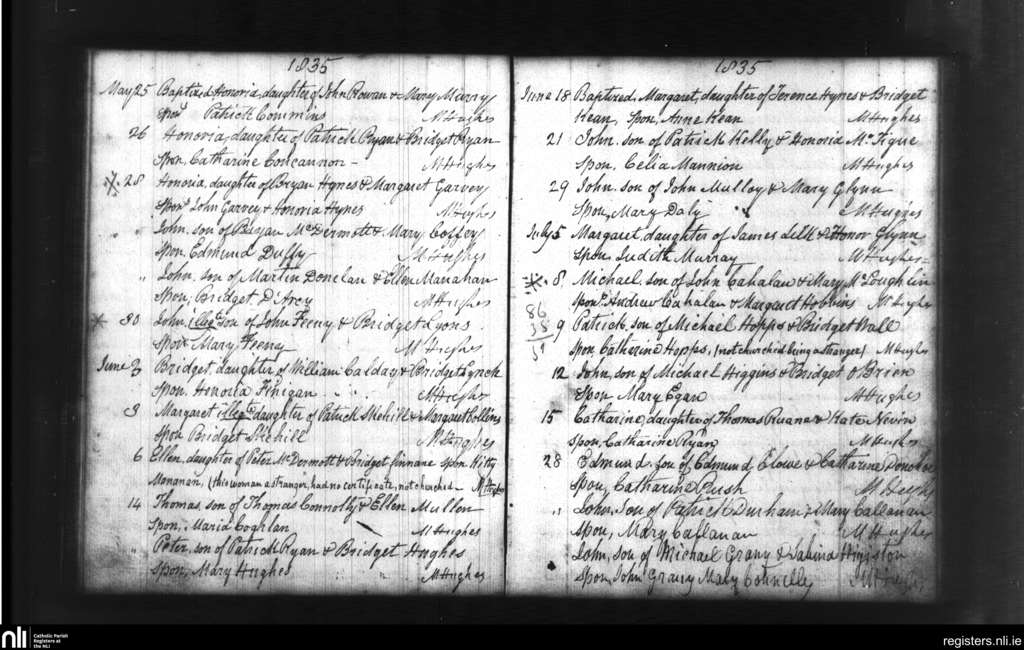 1835
May 25 Baptized Honoria, daughter of John Rowan & Mary Murry
Spon Patrick Commins MHughes
26 Honoria, daughter of Patrick Ryan & Bridget Ryan
Spon, Catharine Concannon - MHughes
28 Honoria, daughter of Bryan Hynes & Margaret Garvey
Spon John Garvey & Honoria Hynes MHughes
" John, son of Bryan McDermott & Mary Coffey
Spon, Edmund Duffy MHughes
" John, son of Martin Donelan & Ellen Manahan
Spon, Bridget D'Arcy MHughes
30 John, illeg. son of John Feeny & Bridget Lyons
Spon Mary Feeney MHughes
June 3 Bridget, daughter of William Calday & Bridget Lynch
Spon, Honoria Finigan MHughes
3 Margaret illeg. daughter of Patrick Skehill & Margaret Collins
Spon Bridget Skehill MHughes
6 Ellen, daughter of Peter McDermott & Bridget Finnane Spon Kitty
Manahan, (this woman a stranger, had no certificate, not churched MHughes
14 Thomas son of Thomas Connolly & Ellen Mullen
Spon, Maria Coghlan MHughes
" Peter, son of Patrick Ryan & Bridget Hughes
Spon, Mary Hughes MHughes
1835
June 18 Baptized, Margaret, daughter of Terence Hynes & Bridget
Kean, Spon, Anne Kean MHughes
21 John, son of Patrick Kelly & Honoria McTigue
Spon, Celia Mannion MHughes
29 John, son of John Mulloy & Mary Glynn
Spon, Mary Daly MHughes
July 5 Margaret, daughter of James Lilly & Honor Glynn
Spon, Judith Murray MHughes
8 Michael, son of John Cahalan & Mary McLoughlin
Spon, Andrew Cahalan & Margaret Hobbins MHughes
86
38
9 Patrick, son of Michael Hopps & Bridget Wall
Spon, Catherine Hopps, (not churched being a stranger) MHughes
12 John, son of Michael Higgins & Bridget O'Brien
Spon, Mary Egan MHughes
15 Catharine, daughter of Thomas Ruane & Kate Nevin
Spon, Catharine Ryan MHughes
28 Edmund, son of Edmund Elowe & Catharine
Spon, Catharine Rush MHughes
" John, Son of Patrick Durham & Mary Callanan
Spon, Mary Callanan MHughes
John, son of Michael Grany & Sabina Hynston
Spon, John Grany Mary Connelly MHughes
nli
Catholic Parish
Registers at
the NLI
registers.nli.ie